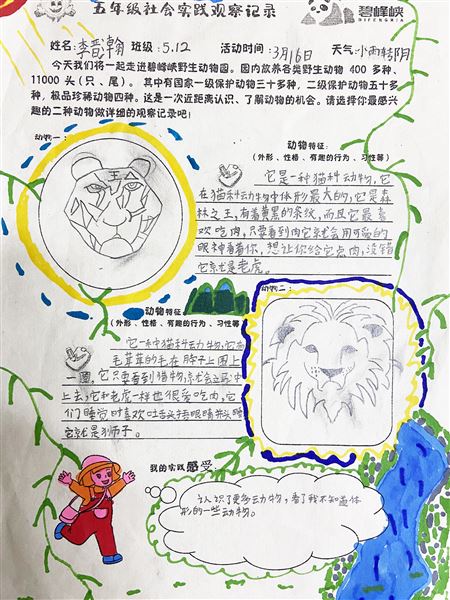 五年级社会实践观察记录
碧峰峡
BIFENGXIA
姓名:李 翰 班级:5.12 活动时间:3月16日 天气:小雨转阴
今天我们将一起走进碧峰峡野生动物园。园内放养各类野生动物 400 多种、
11000 头(只、尾)。其中有国家一级保护动物三十多种,二级保护动物五十多
种,极品珍稀动物四种。这是一次近距离认识、了解动物的机会。请选择你最感兴
趣的二种动物做详细的观察记录吧!
动物一:
动物特征:
(外形、性格、有趣的行为、习性等)
它是一种猫科动物,它
在猫科动物中体形最大的,它是森
林之王,有着黄黑的条纹,而且它最喜
欢吃肉,只要看到肉它就会用可爱的
眼神看着你,想让你给它点肉,没错
它就是老虎。
王
动物特征
(外形、性格、有趣的行为、习性等
动物二:
它一种猫科动物,它有
毛茸茸的毛在脖子上围上
一圈,它只要看到猎物,就会立马
上去,它和老虎一样也很爱吃肉,它
们睡觉时喜欢吐舌头
它就是狮子。
我的实践感受:
认识了更多动物,看了我不知道体
形的一些动物。